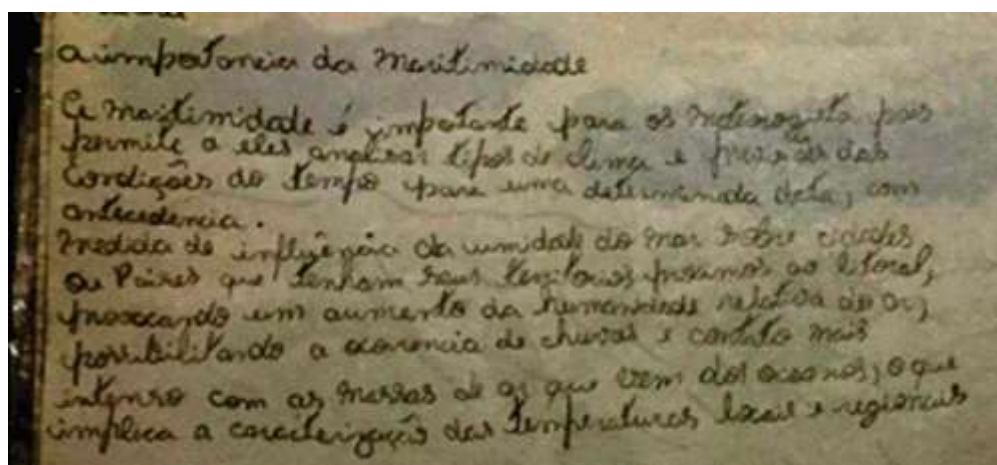 a importancia da Maritimidade
A maritimidade é importante para os meteorogista pois
permite a eles analisar tipos de clima e previsões das
condições do tempo para uma determinada data, com
antecedencia.
Medida de influência da umidade do mar sobre cidades
ou Paises que tenham seus territorios proximos ao litoral,
provocando um aumento da humanidade relativa do ar,
possibilitando a ocorrencia de chuvas e contato mais
intenso com as massas de ar que vem dos oceanos, o que
implica a caracterização das temperaturas locais e regionais